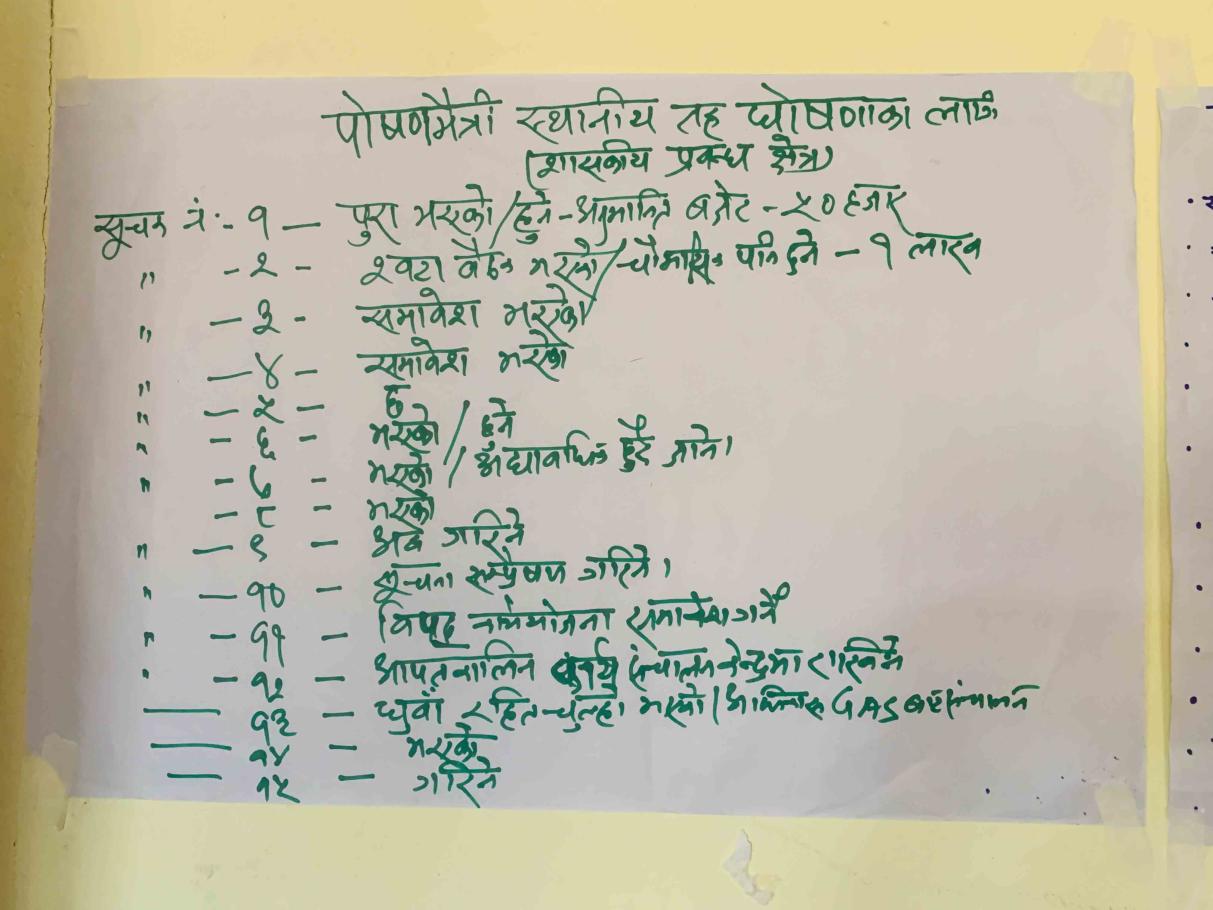 पोषणमैत्री स्थानीय तह घोषणाका लागि
(शासकीय प्रबन्ध क्षेत्र)
सूचक नं.- १ — पुरा भएको/हुने - अनुमानित बजेट - ५० हजार
" - २ - २ वटा बैठक भएको/चौमासिक पनि हुने - १ लाख
" - ३ - समावेश भएको
" - ४ - समावेश भएको
" - ५ - छ
" - ६ - भएको / हुने
" - ७ - भएको / अद्यावधिक हुदै जाने।
- ८ - भएको
" - ९ - अब गरिने
" - १० - सूचना सम्प्रेषण गरिने।
" - ११ - विपद् कार्ययोजना समावेश गर्ने
" - १२ - आपतकालिन कार्य संचालन केन्द्रमा राखिने
— १३ - धुवाँ रहित चुल्हो भएको / GAS बाट संचालन
— १४ - भएको
— १५ - गरिने